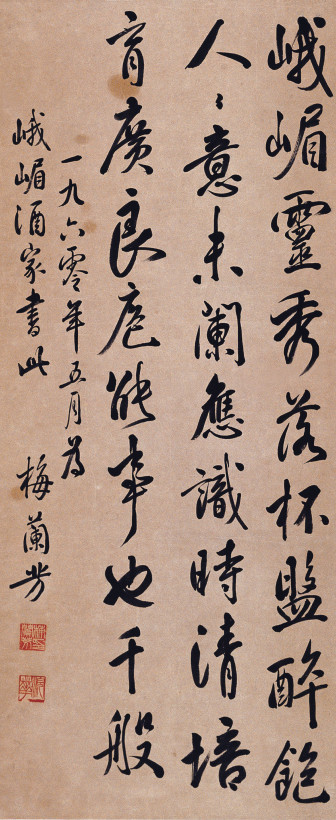 峨嵋靈秀落杯盤醉飽
人〻意未闌應識時清培
育廣良庖能事也千般
一九六零年五月為
峨嵋酒家書此
梅蘭芳